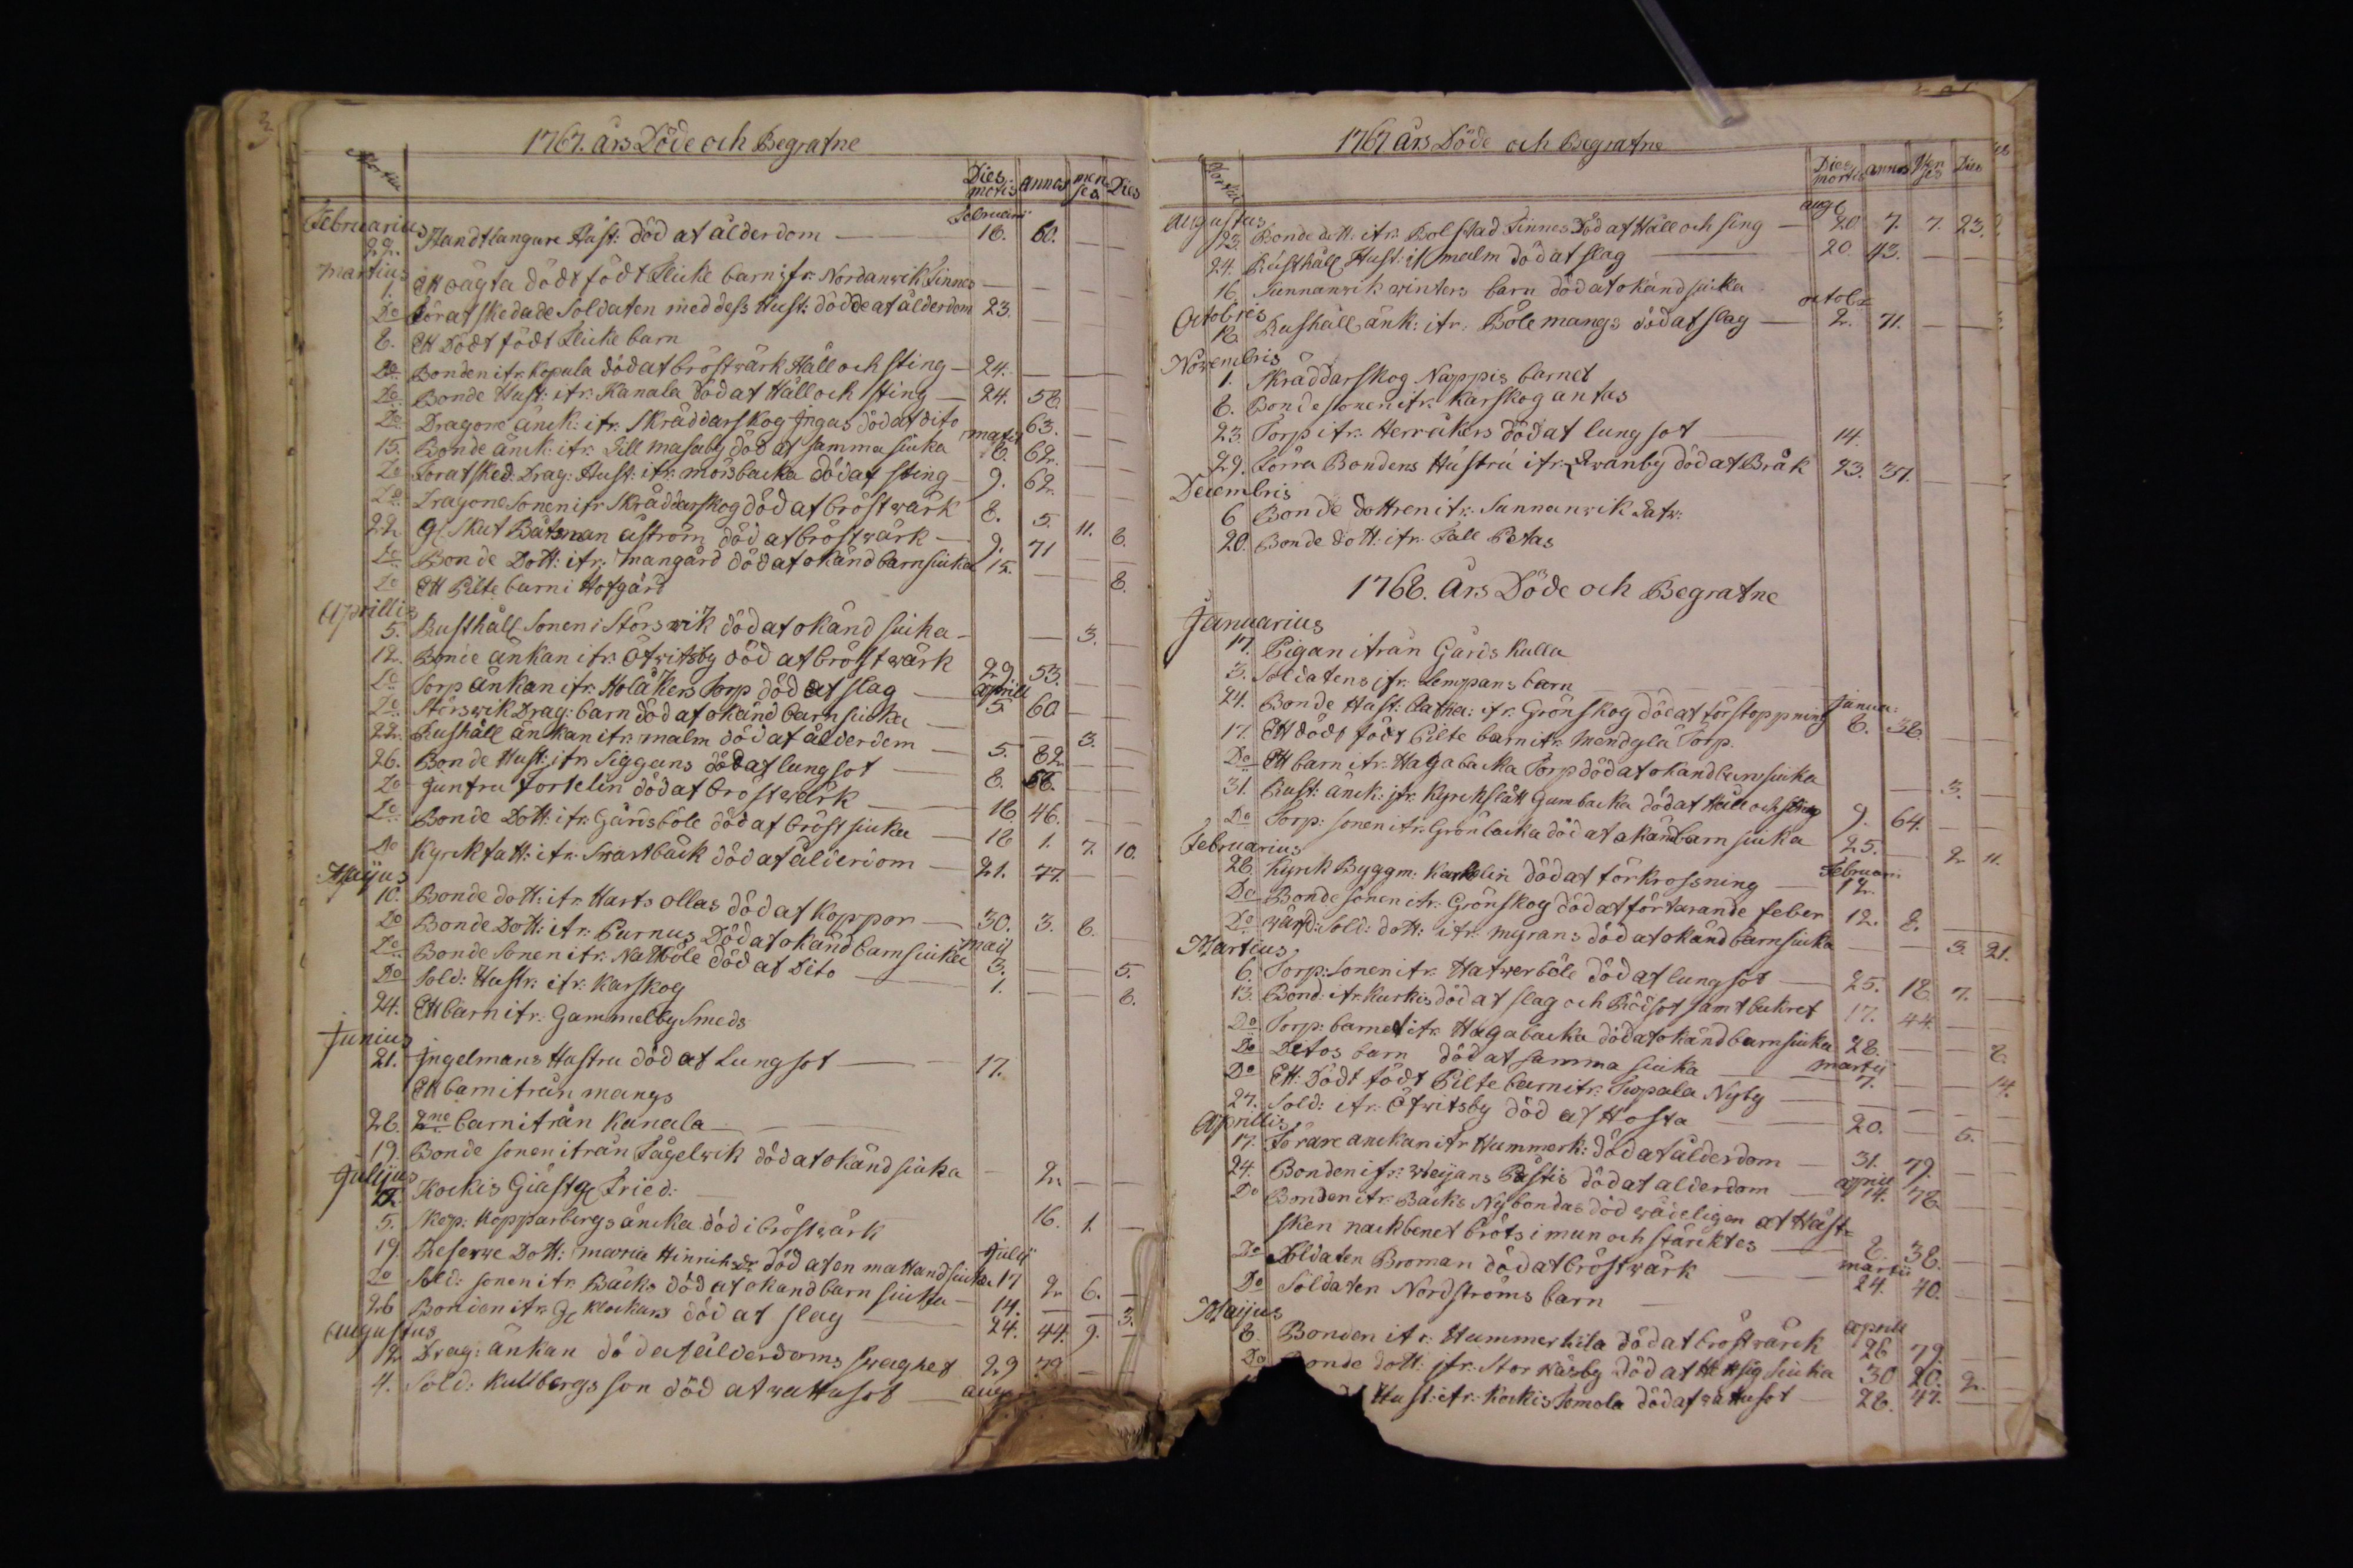 3
1767. års Döde och Begrafne
Dies mortis annos menses Dies
Februarius Februarii
22. Handtlangare Hust: död af ålderdom 18. 60.
Martius
1. Ett oägta dödt födt Flicke barn ifr. Nordanwik Finnes
Do Förafskedade Soldaten med dess Hust: dödde af ålderdom 23.
8. Ett Dödt födt Flicke barn
Do Bonden ifr. Kopula död af bröstwärk Håll och sting 24.
Do Bonde Hust: ifr. Kanala död af Håll och sting 24. 58.
Do Dragone änck: ifr. Skräddarskog Ingas död af dito 63.
15. Bonde änck: ifr. Lill Masaby död af samma siuka 6. 62.
Do Forafsked: Drag: Hust: ifr. morsbacka död af sting 9. 62.
Do Dragone Sonen ifr Skräddarskog död af bröstwärk 8. 5. 11. 8.
22 Gl. Skut Båtsman åström död af bröstwärk 9. 71
Do Bonde Dott: ifr. mangård död af okänd barnsiuka 15. 8.
Do Ett Pilte barn i Hofgård
Aprillis
5. Rusthåll Sonen i Störswik död af okänd siuka 3.
12. Bonde änkan ifr. Öfwitsby död af bröstwärk 29 53.
Do Torp Änkan ifr. Holåkers Torp död af slag Aprill 5 60
Do Störswik Drag: barn död af okänd barnsiuka 3.
22. Rushåll änkan ifr. malm död af ålderdom 5. 82
26. Bonde Hust: ifr Siggans död af lungsot 8. 58.
Do Junfru fortelin död af bröstwärk 16. 46.
Do Bonde Dott: ifr. Gårdsböle död af bröst siuka 18 1. 7. 10.
Do Kyrkfatt: ifr. Swartbäck död af ålderdom 21. 77.
Maijus
10. Bonde dott: ifr. Harts ollas död af Koppor 30. 3. 8.
Do Bonde Dott: ifr. Purnus Död af okänd barnsiuka maij 3. 5.
Do Bonde Sonen ifr. Nattböle död af Dito 1. 8.
Do Sold: Hustr. ifr. Karskog
24. Ett barn ifr. Gammelby Smeds
Junius
21. Ingelmans Hustru död af Lungsot 17.
Ett barn ifrån mangs
28. 2ne barn ifrån Kanala
19. Bonde sonen ifrån Fågelwik död af okänd siuka 2.
Julijus
12. Kockis Giästg Fried:
5. Skep: Kopparbergs äncka död i bröstwärk 16. 1.
19. Reserwe Dott: maria Hinrichsdr död af en mattand siuka Julij 17 2 6.
Do Sold: sonen ifr Backs död af okand barn siuka 14. 3.
26 Bonden ifr. Gl Klockars död af slag 24. 44. 9.
Augustus
2 Drag: änkan död af ålderdoms swaghet 29 79
4. Sold: Kullbergs son död af wattusot aug
1767 års Döde och Begrafne
Dies mortis annos Menses Dies
Augustus aug
23. Bonde dott: ifr. Bolstad Finnes Död af Håll och sing 20 7. 7. 23.
24. Rusthåll Hust: if malm död af slag 20. 43.
16. Sunnanwik winters barn död af okänd siuka
Octobris octobr
12. Rushåll änk: ifr. Böle mangs död af slag 2. 71.
Novembris
1. Skräddarskog Nappis barnet
8. Bonde sonen ifr. Karskog antas
23. Torp ifr. Herråkers död af lungsot 14.
29. Förra Bondens Hustru ifr. Qwanby död af Bråk 23. 37.
Decembris
6 Bonde dottren ifr. Sunnanwik Satr.
20. Bonde dott: ifr. Fall Petas
1768. års Döde och Begrafne
Januarius
17. Pigan ifrån Gårds kulla
3. Soldatens ifr. Lempans barn
24. Bonde Hust. Catha: ifr. Grönskog död af förstoppning Janua: 8. 38.
17. Ett dödt födt Pilte barn ifr. Mendgla Torp.
Do Ett barn ifr. Hagabacka Torp död af okand barnsiuka 3.
31. Rust: änck: ifr. Kyrckslätt Gumbacka död af Håll och sting 9. 64.
Do Torp: sonen ifr. Grönbacka död af okänd barn siuka 25. 2 11.
Februarius Februari
28. Kyrck Byggm. Karhelin död af förkrossning 12.
Do Bonde sonen ifr. Grönskog död af förtarande feber 12. 8.
Do wärfd: Sold: dott: ifr. myrans död af okänd barnsiuka 3. 21.
Martius
6. Torp: sonen ifr. Hatwerböle död af lungsot 25. 18. 7.
13. Bond: ifr. Kurkis död af slag och Rödsot samt bukref 17. 44.
Do Torp: barnet ifr. Hagabacka död af okänd barnsiuka 28. 8.
Do Ditos barn död af samma siuka martij 7. 14.
Do Ett: Dödt födt Pilte barn ifr. Sopala Nyby
27. Sold: ifr. Öfwitsby död af Hosta 20. 5.
Aprillis
17. Förare anckan ifr Hammerk: död af ålderdom 31. 79.
24. Bonden ifr: Weijans Båstis död af alderdom april 14. 78
Do Bonden ifr. Backs Nybondas död wådeligen af Häst-
sken nackbenet bröts i mun och stäncktes 8. 38.
Do Soldaten Broman död af bröstwärk martii 24. 40.
Do Soldaten Nordströms barn
Maijus
8. Bonden ifr: Hammerkila död af bröstwärck aprill 26 79.
Do Bonde dott: ifr. Stor Näsby död af Hettsig siuka 30 20. 2.
Hust: ifr. Kockis Tomola död af wattusot 28. 47.